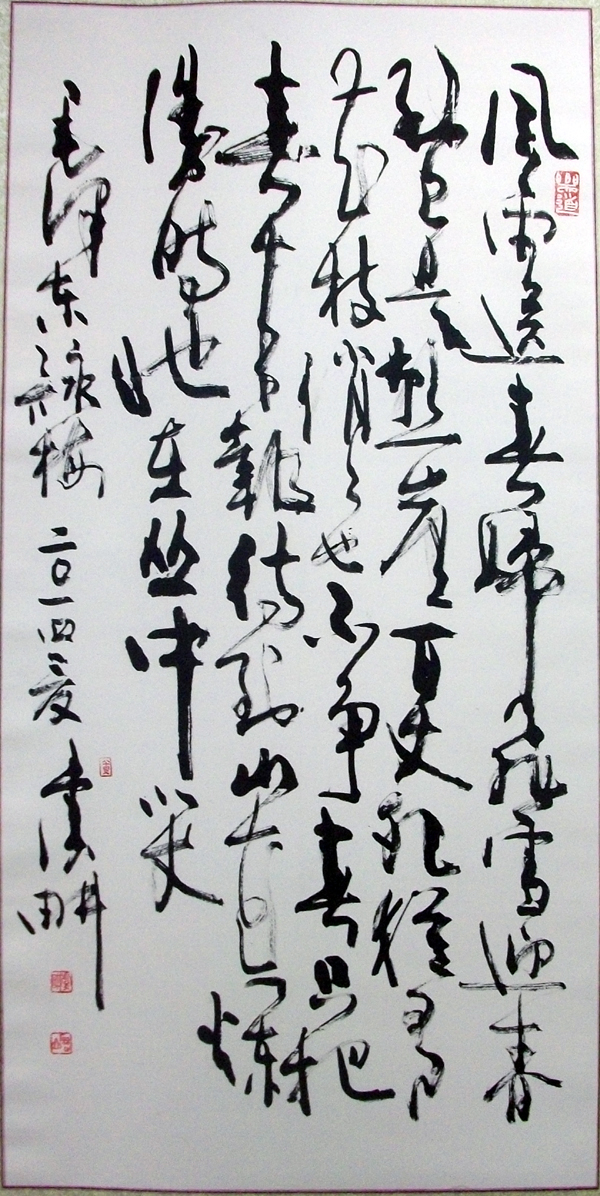 風雨送春歸飛雪迎春
到已是懸崖百丈冰猶有
花枝俏々也不争春只把
春来報待到山花爛
漫時她在丛中笑
毛澤东詠梅 二〇一四夏 畊